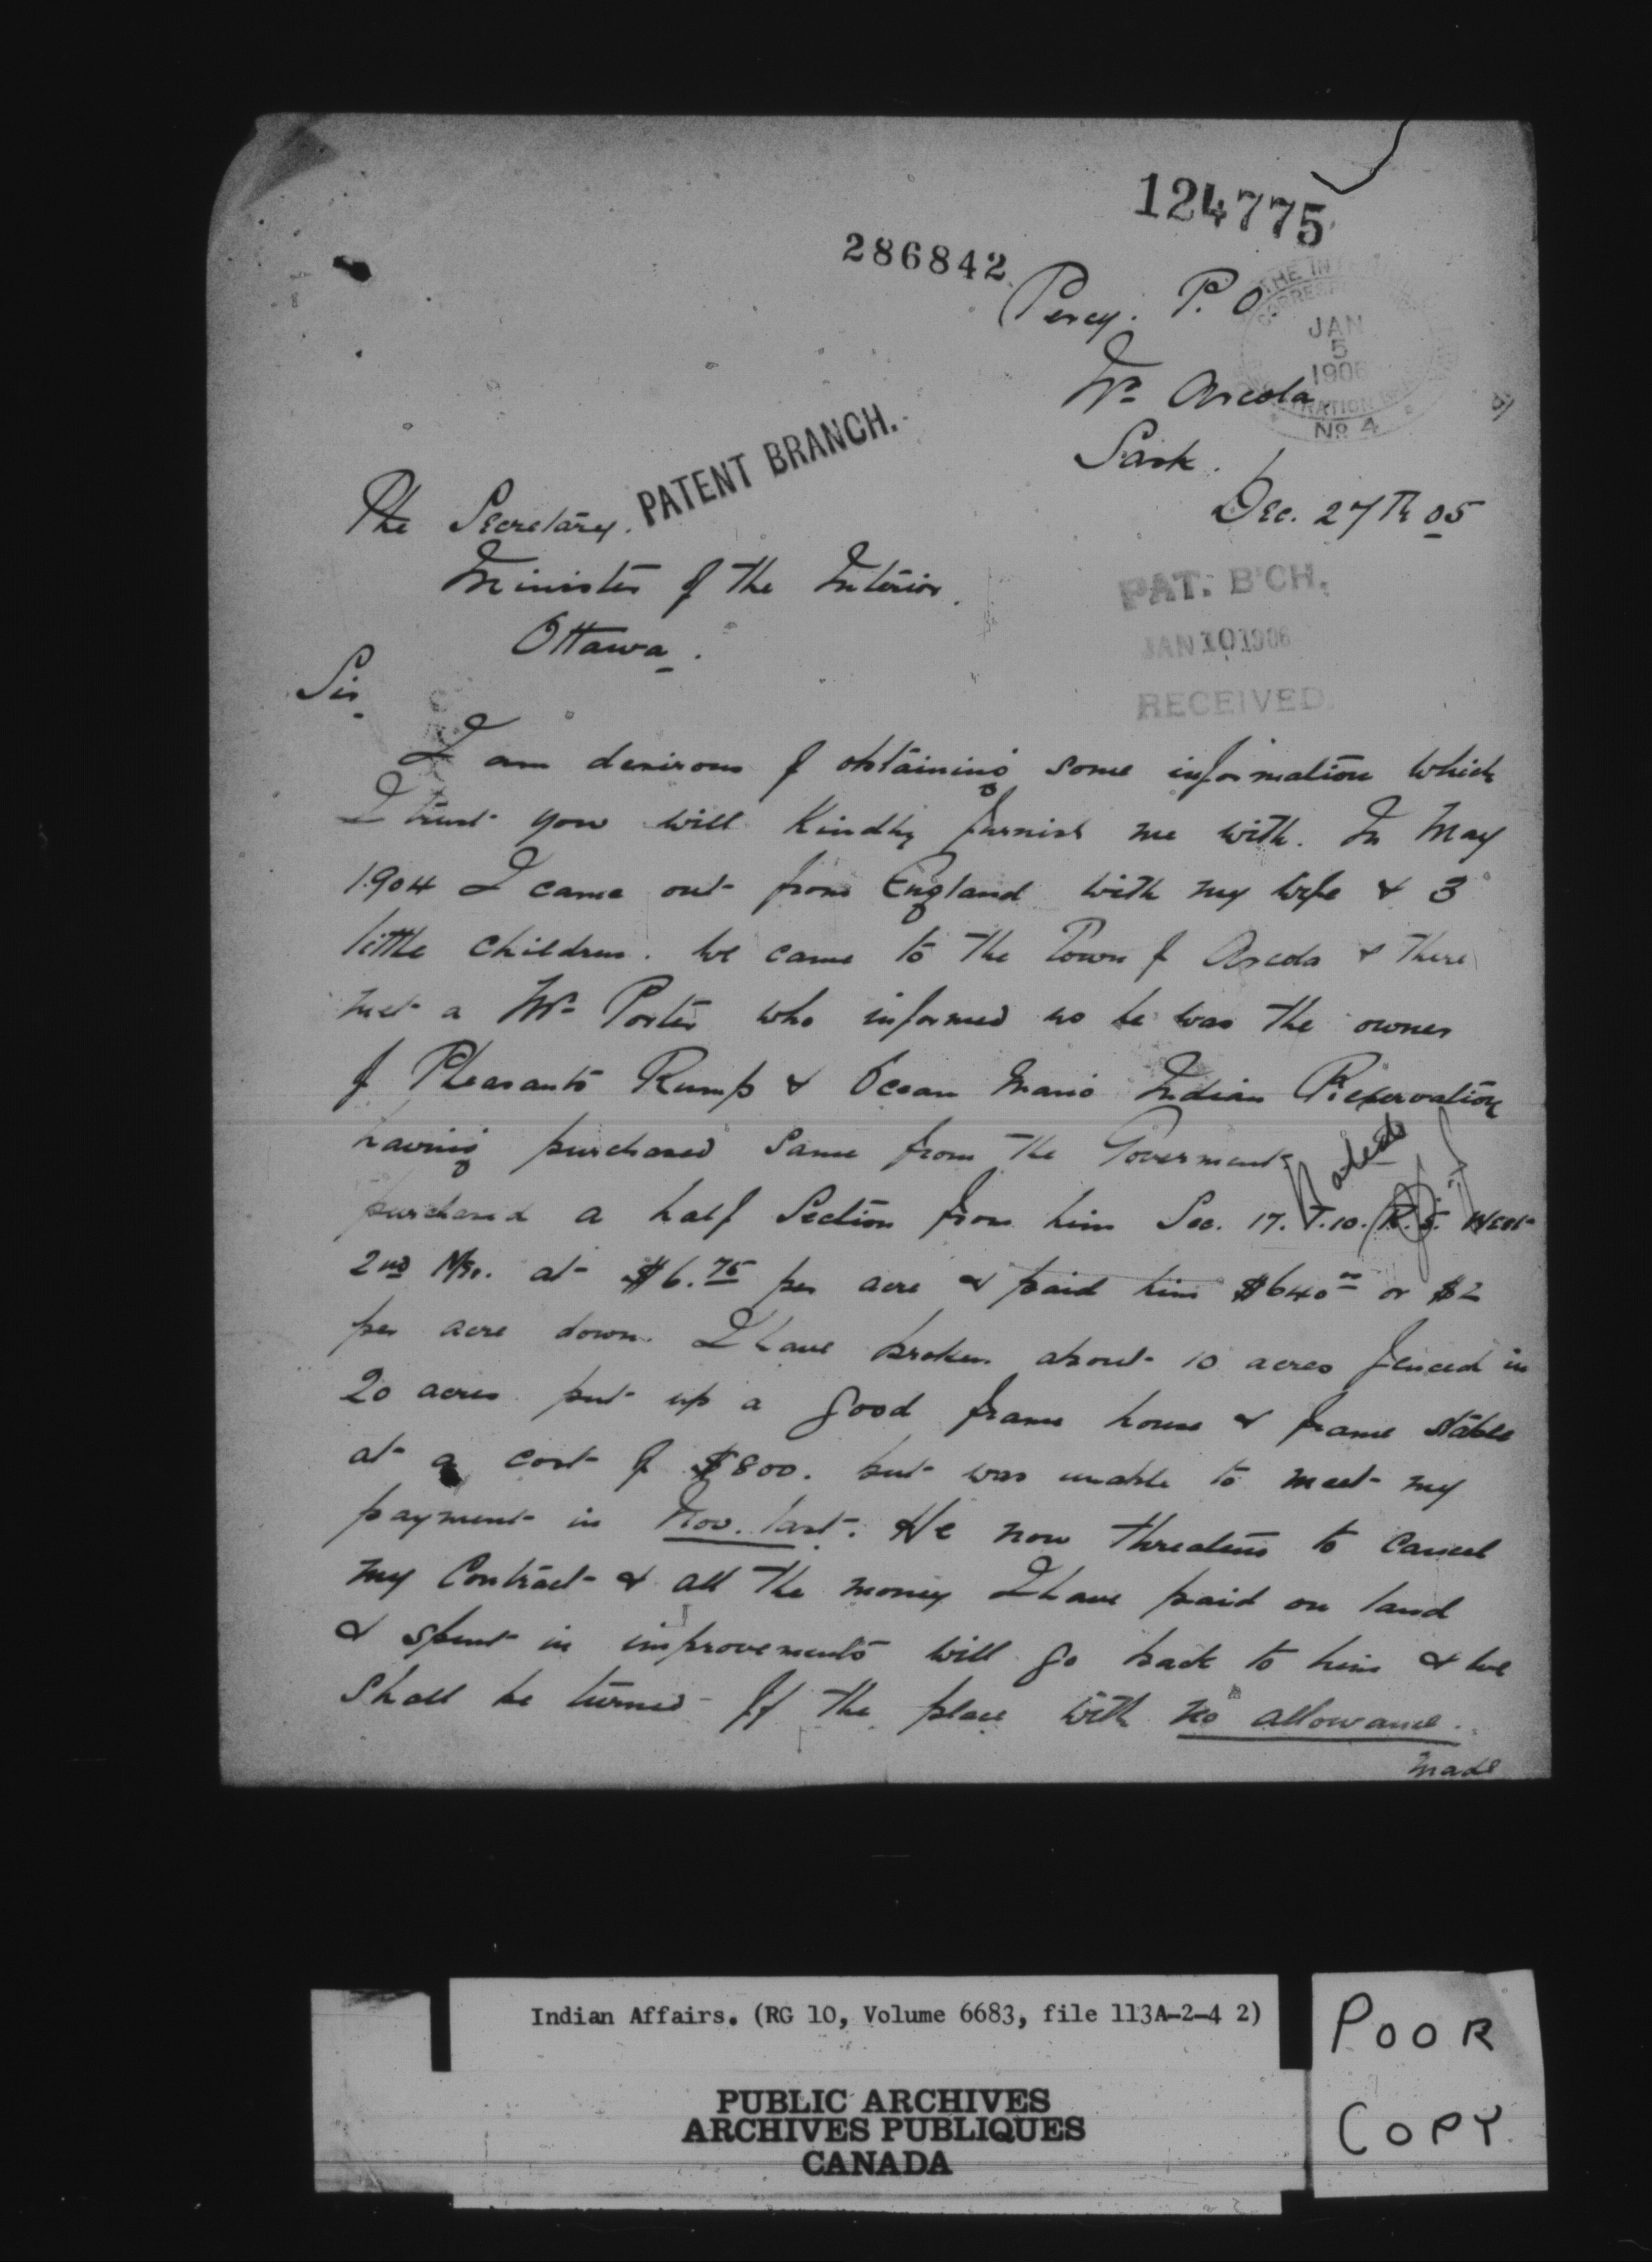 124775
286842
Percy. P. O.
Nr Arcola
Sask.
Dec. 27th 05
THE IN
CORRES
JAN
5
1906
TRATION
No 4
PATENT BRANCH.
The Secretary.
Minister of the Interior.
Ottawa.
PAT. B'CH.
JAN 10 1906
RECEIVED
Sir
I am desirous of obtaining some information which
I trust you will kindly furnish me with. In May
1904 I came out from England with my wife & 3
little children. We came to the Town of Arcola & there
met a Mr Porter who informed us he was the owner
of Pheasants Rump & Ocean Mans Indian Reservation
having purchased same from the Goverment
purchased a half Section from him Sec. 17. T.10. R.5. West
2nd Mer. at $6.75 per acre & paid him $640 00 or $2
per acre down. I have broken about 10 acres fenced in
20 acres put up a good frame house & frame stable
at a cost of $800. but was unable to meet my
payment in Nov. last. He now threatens to cancel
my Contract & all the money I have paid on land
& spent in improvements will go back to him & we
shall be turned of the place with no allowance.
made
Indian Affairs. (RG 10, Volume 6683, file 113A-2-4 2)
PUBLIC ARCHIVES
ARCHIVES PUBLIQUES
CANADA
POOR
COPY